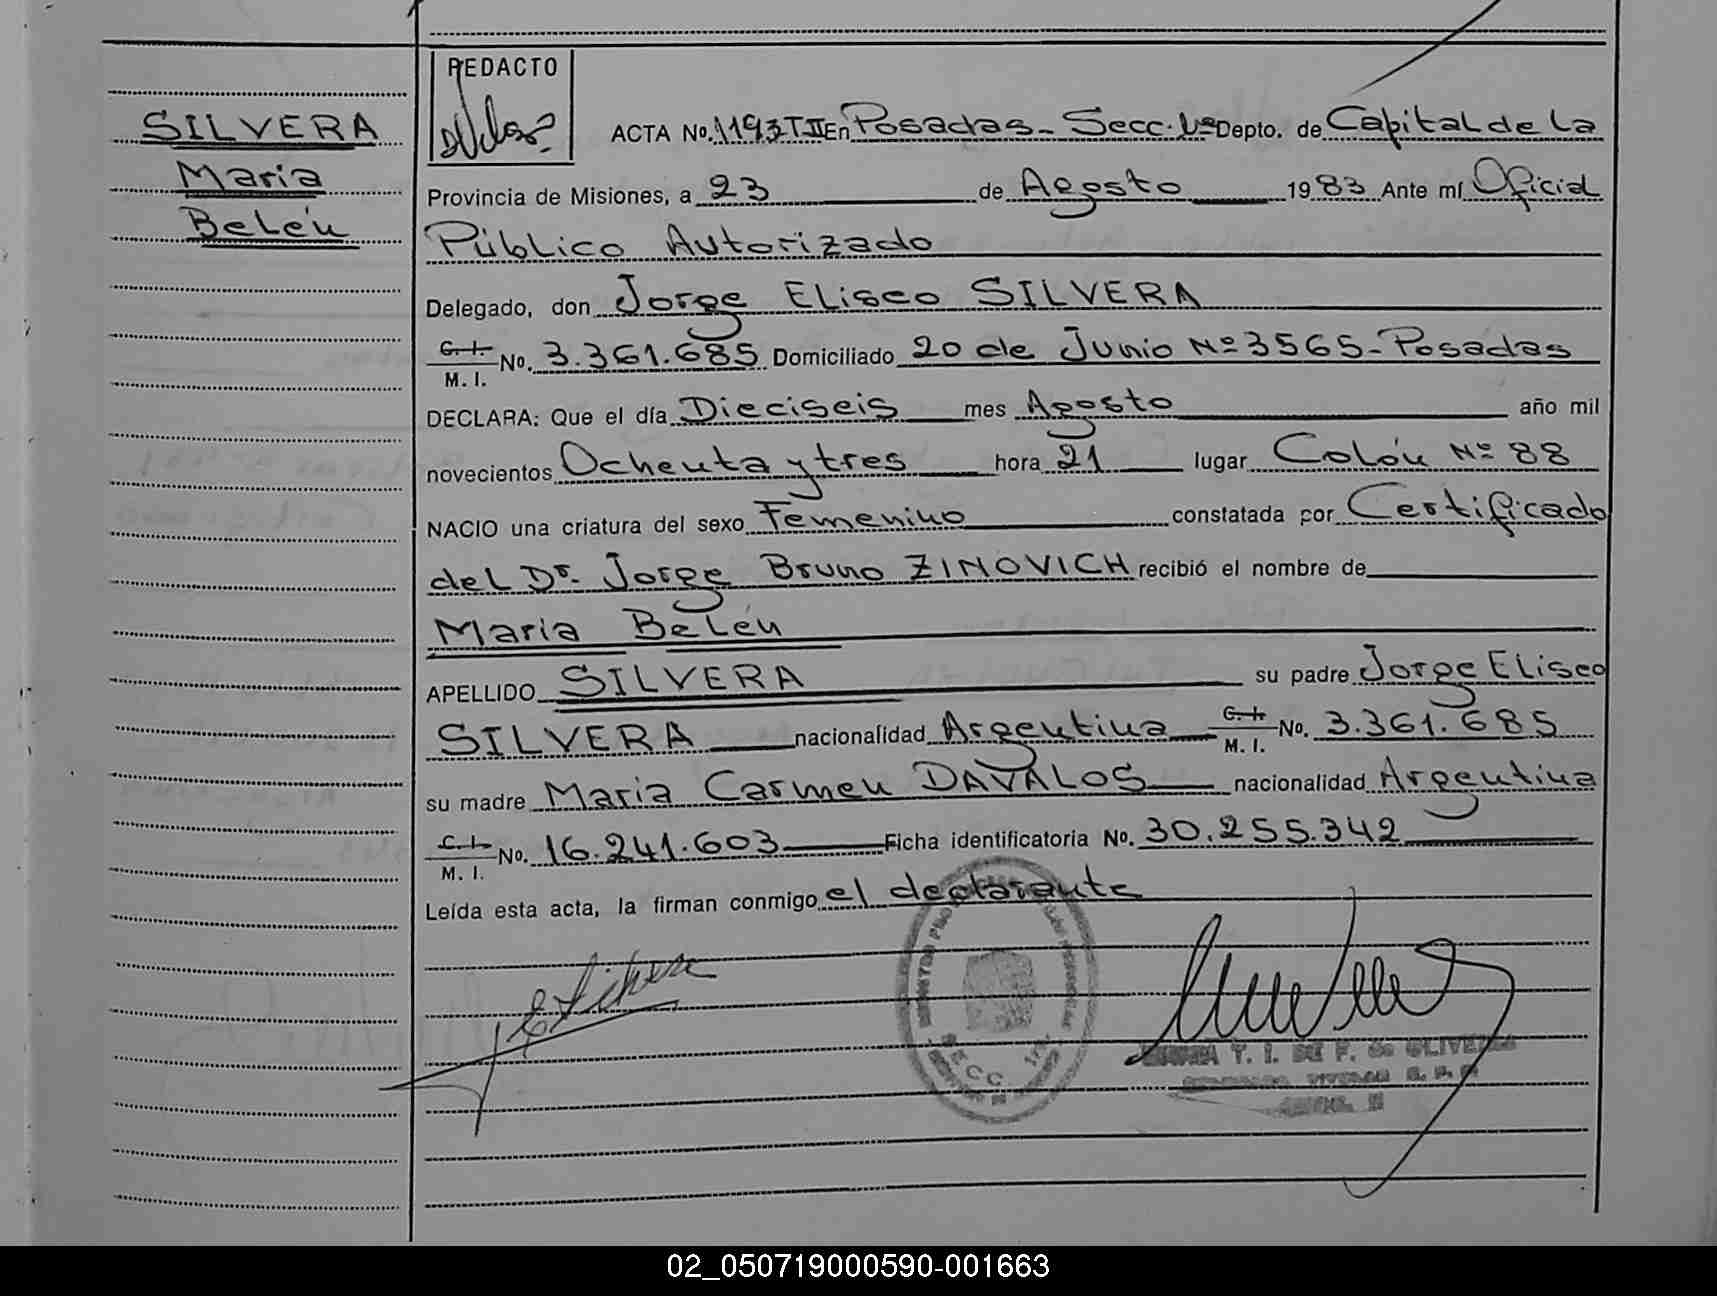 SILVERA
Maria
Belén
REDACTO
ACTA No. 1193 T II En Posadas - Secc. 1ª Depto. de Capital de la
Provincia de Misiones, a 23 de Agosto 1983 Ante mí Oficial
Público Autorizado
Delegado, don Jorge Eliseo SILVERA
C. I. M. I. No. 3.361.685 Domiciliado 20 de Junio Nº 3565 - Posadas
DECLARA: Que el día Dieciseis mes Agosto año mil
novecientos Ochenta y tres hora 21 lugar Colón Nº 88
NACIO una criatura del sexo Femenino constatada por Certificado
del Dr. Jorge Bruno ZINOVICH recibió el nombre de
Maria Belén
APELLIDO SILVERA su padre Jorge Eliseo
SILVERA nacionalidad Argentina C. I. M. I. No. 3.361.685
su madre Maria Carmen DAVALOS nacionalidad Argentina
C. I. M. I. No. 16.241.603 Ficha identificatoria No. 30.255.342
Leída esta acta, la firman conmigo el declarante
SECC. 1ra.
T. I. DE F. de OLIVEIRA
02_050719000590-001663